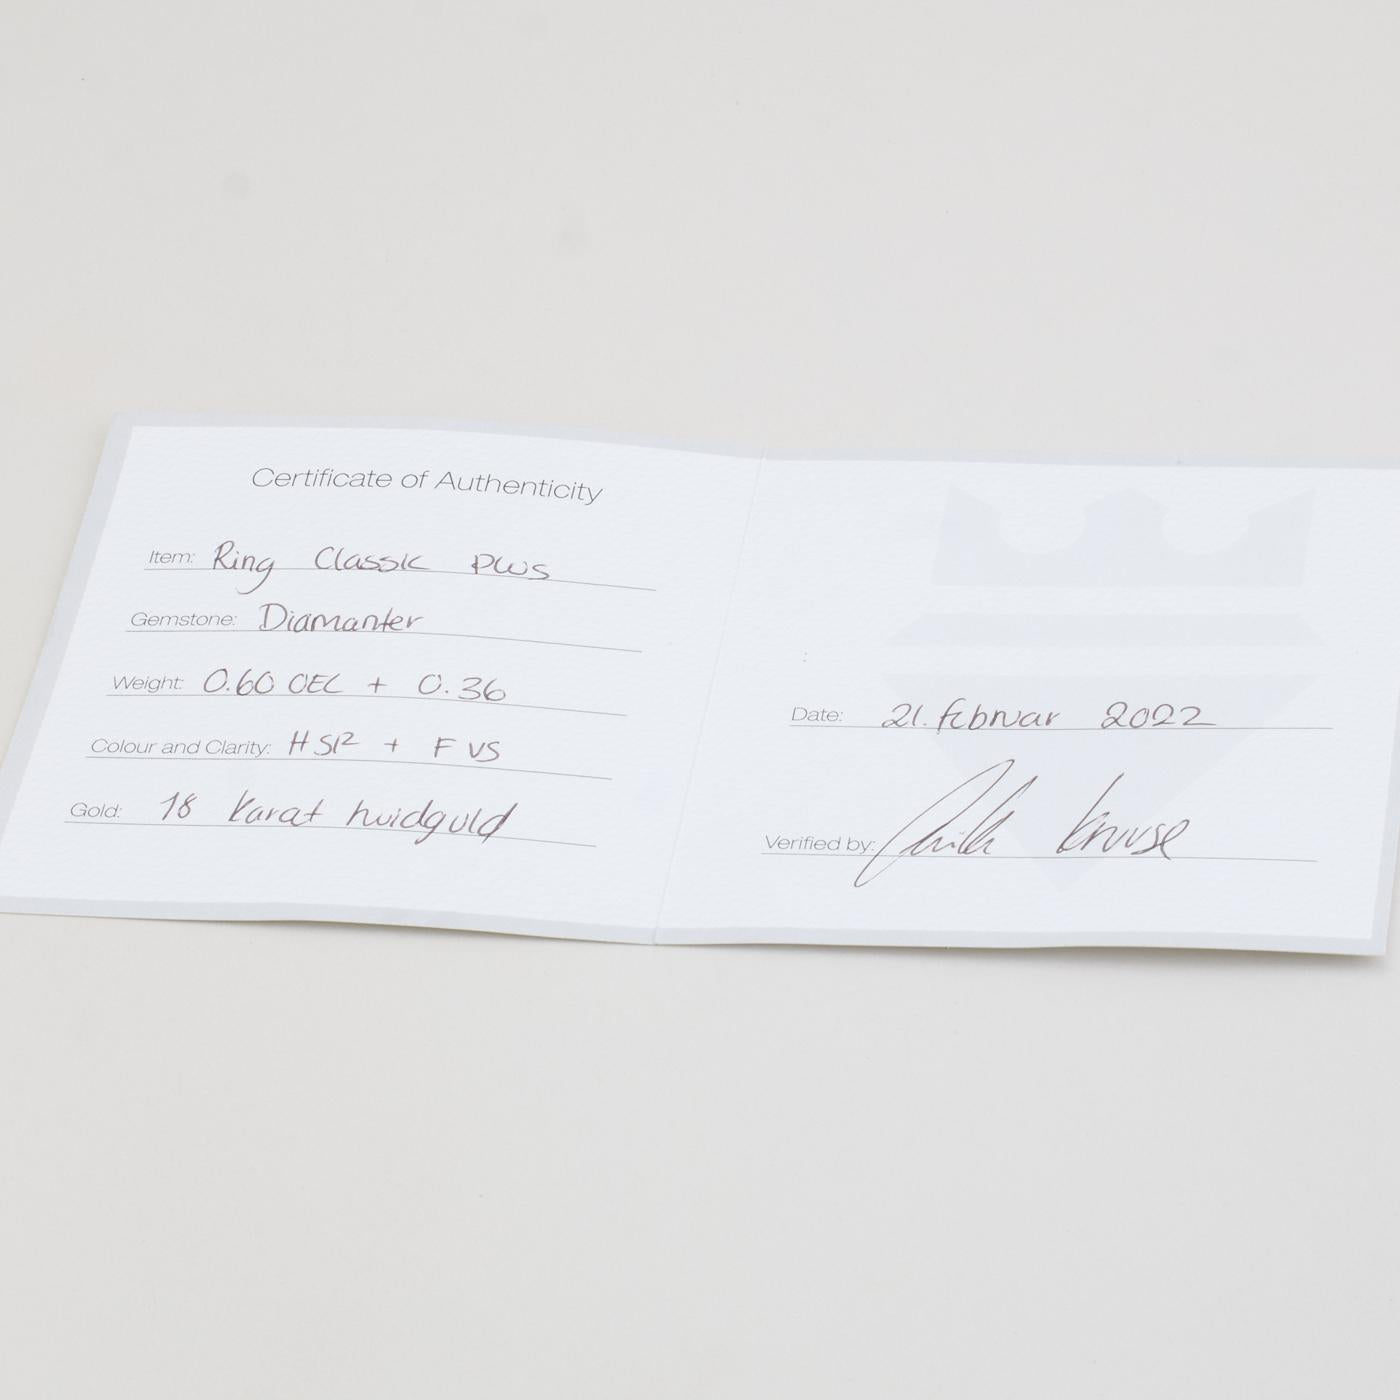 Certificate of Authenticity
Item: Ring Classic Plus
Gemstone: Diamanter
Weight: 0.60 OEC + 0.36
Colour and Clarity: H SI2 + F VS
Gold: 18 karat hvidguld
Date: 21. februar 2022
Verified by: